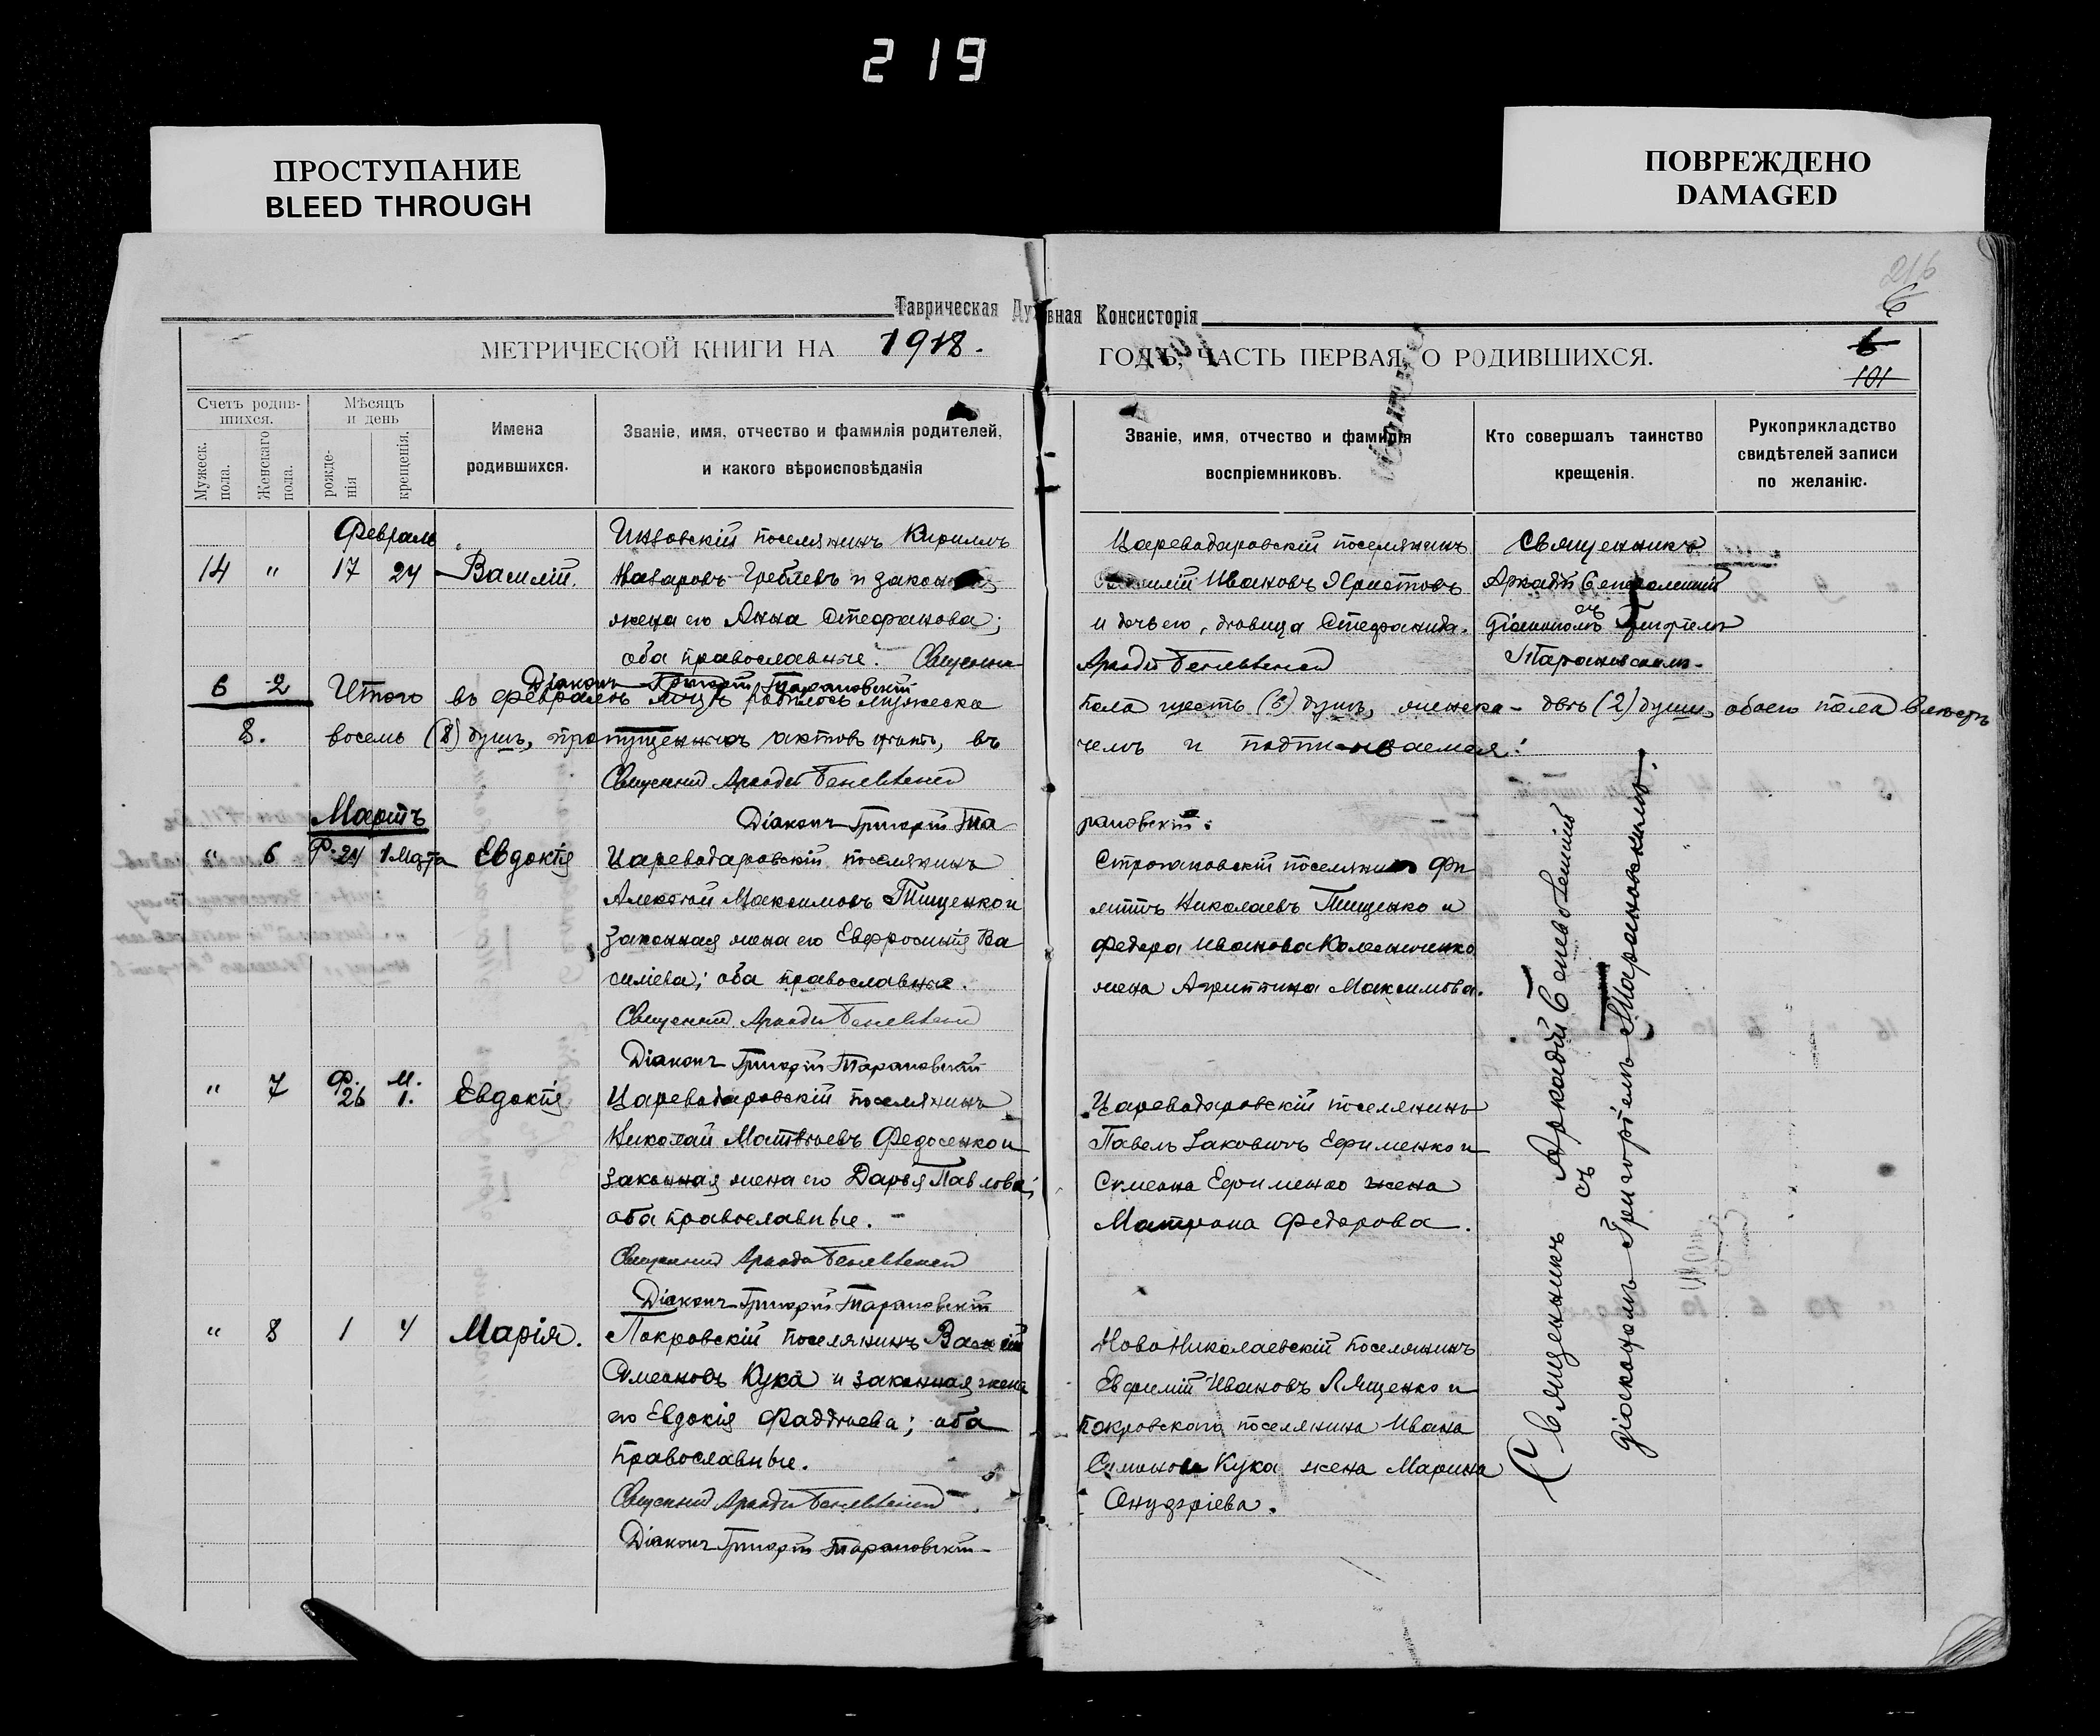 219
ПРОСТУПАНИЕ
BLEED THROUGH
ПОВРЕЖДЕНО
DAMAGED
216
6
Таврическая Духовная Консисторія
МЕТРИЧЕСКОЙ КНИГИ НА 1918. ГОДЪ, ЧАСТЬ ПЕРВАЯ, О РОДИВШИХСЯ.
6
101
Счетъ родив-
шихся.
Мужеск.
пола.
Женскаго
пола.
Мѣсяцъ
и день
рожде-
нія
крещенія.
Имена
родившихся.
Званіе, имя, отчество и фамилія родителей,
и какого вѣроисповѣданія
Званіе, имя, отчество и фамилія
воспріемниковъ.
Кто совершалъ таинство
крещенія.
Рукоприкладство
свидѣтелей записи
по желанію.
Февраль
14 " 17 24 Василій.
Инзовскій поселянинъ Кириллъ
Назаровъ Греблевъ и законная
жена его Анна Стефанова;
оба православные. Священни
Діаконъ Григорій Тарановскій
Цареводаровскій поселянинъ
Василій Ивановъ Христовъ
и дочь его, дѣвица Стефанида.
Аркадій
Священникъ
Аркадій
съ
Діакономъ Григоріемъ
Тарановскимъ
6 2 Итого въ февралѣ мцѣ родилось мужеска пола шесть (6) душъ, женска - двѣ (2) души, обоего пола вмѣстѣ
8. восемь (8) душъ, пропущенныхъ актовъ нѣтъ, въ чемъ и подписываемся:
Священник Аркадій
Діаконъ Григорій Та
рановскій.
Мартъ
" 6 Ф. 24 1 Марта Евдокія
Цареводаровскій поселянинъ
Алексѣй Максимовъ Тищенко и
законная жена его Евфросинія Ва
силіева; оба православные.
Священник Аркадій
Діаконъ Григорій Тарановскій
Строгановскій поселянинъ Фи
липпъ Николаевъ Тищенко и
Федора Иванова Колесниченко
жена Агриппина Максимова.
" 7 Ф. 26 М. 1. Евдокія
Цареводаровскій поселянинъ
Николай Матвѣевъ Федосенко и
законная жена его Дарья Павлова;
оба православные.
Священник Аркадій
Діаконъ Григорій Тарановскій
Цареводаровскій поселянинъ
Павелъ Іаковлевъ Ефименко и
Симеона Ефименко жена
Матрона Федорова.
" 8 1 4 Марія.
Покровскій поселянинъ Василій
Симеоновъ Кука и законная жена
его Евдокія Фаддѣева; оба
православные.
Священник Аркадій
Діаконъ Григорій Тарановскій
Ново Николаевскій поселянинъ
Евфимій Ивановъ Лященко и
покровскаго поселянина Ивана
Симонова Кука жена Марина
Онуфріева.
Священникъ Аркадій
съ
діакономъ Григоріемъ Тарановскимъ.